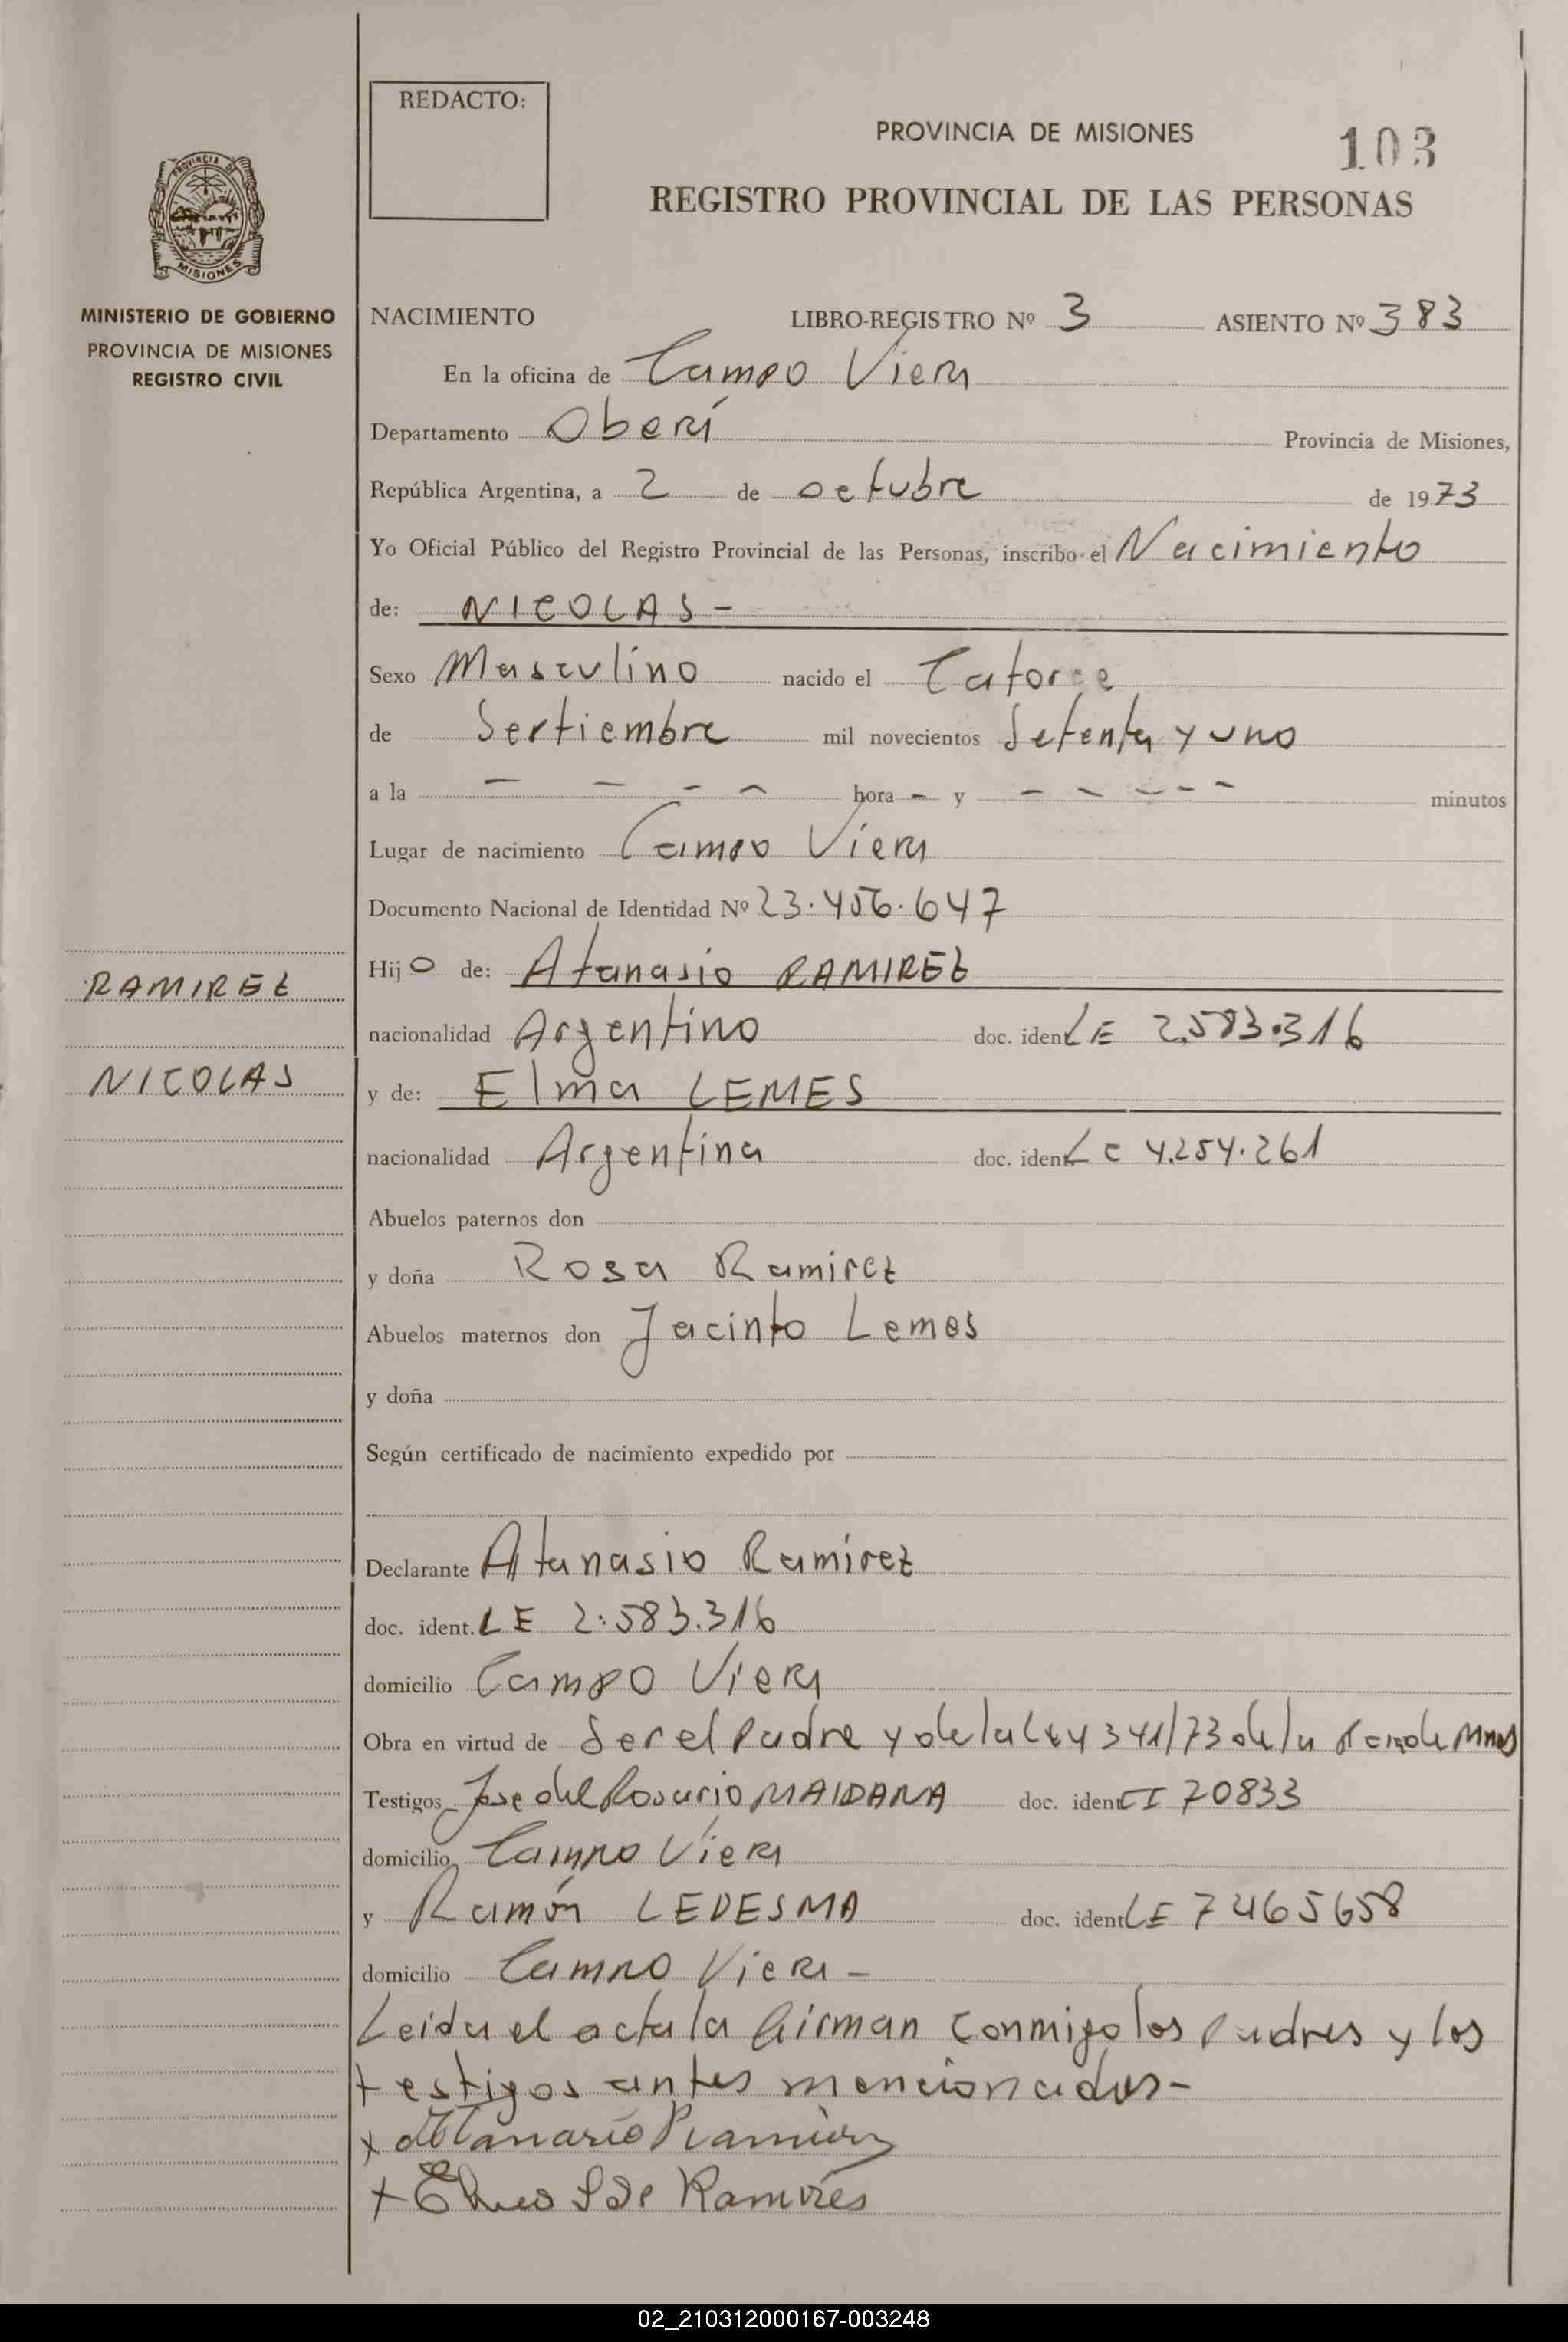 REDACTO:
PROVINCIA DE MISIONES
103
REGISTRO PROVINCIAL DE LAS PERSONAS
PROVINCIA DE
MISIONES
MINISTERIO DE GOBIERNO
PROVINCIA DE MISIONES
REGISTRO CIVIL
NACIMIENTO LIBRO-REGISTRO Nº 3 ASIENTO Nº 383
En la oficina de Campo Viera
Departamento Oberá Provincia de Misiones,
República Argentina, a 2 de octubre de 1973
Yo Oficial Público del Registro Provincial de las Personas, inscribo el Nacimiento
de: NICOLAS -
Sexo Masculino nacido el Catorce
de Sertiembre mil novecientos Setenta y uno
a la - - - - hora - y - - - - - minutos
Lugar de nacimiento Campo Viera
Documento Nacional de Identidad Nº 23.456.647
Hijo de: Atanasio RAMIREZ
RAMIREZ
nacionalidad Argentino doc. ident LE 2.583.316
NICOLAS
y de: Elma LEMES
nacionalidad Argentina doc. ident LC 4.254.261
Abuelos paternos don
y doña Rosa Ramirez
Abuelos maternos don Jacinto Lemes
y doña
Según certificado de nacimiento expedido por
Declarante Atanasio Ramirez
doc. ident. LE 2.583.316
domicilio Campo Viera
Obra en virtud de Ser el Padre y de la Ley 341/73 de la Pcia de Mnes
Testigos Jose del Rosario MAIDANA doc. ident CI 70833
domicilio Campo Viera
y Ramón LEDESMA doc. ident LE 7465658
domicilio Campo Viera -
Leida el acta la firman conmigo los Padres y los
testigos antes mencionados-
x Atanario Ramirez
+ de Ramires
02_210312000167-003248